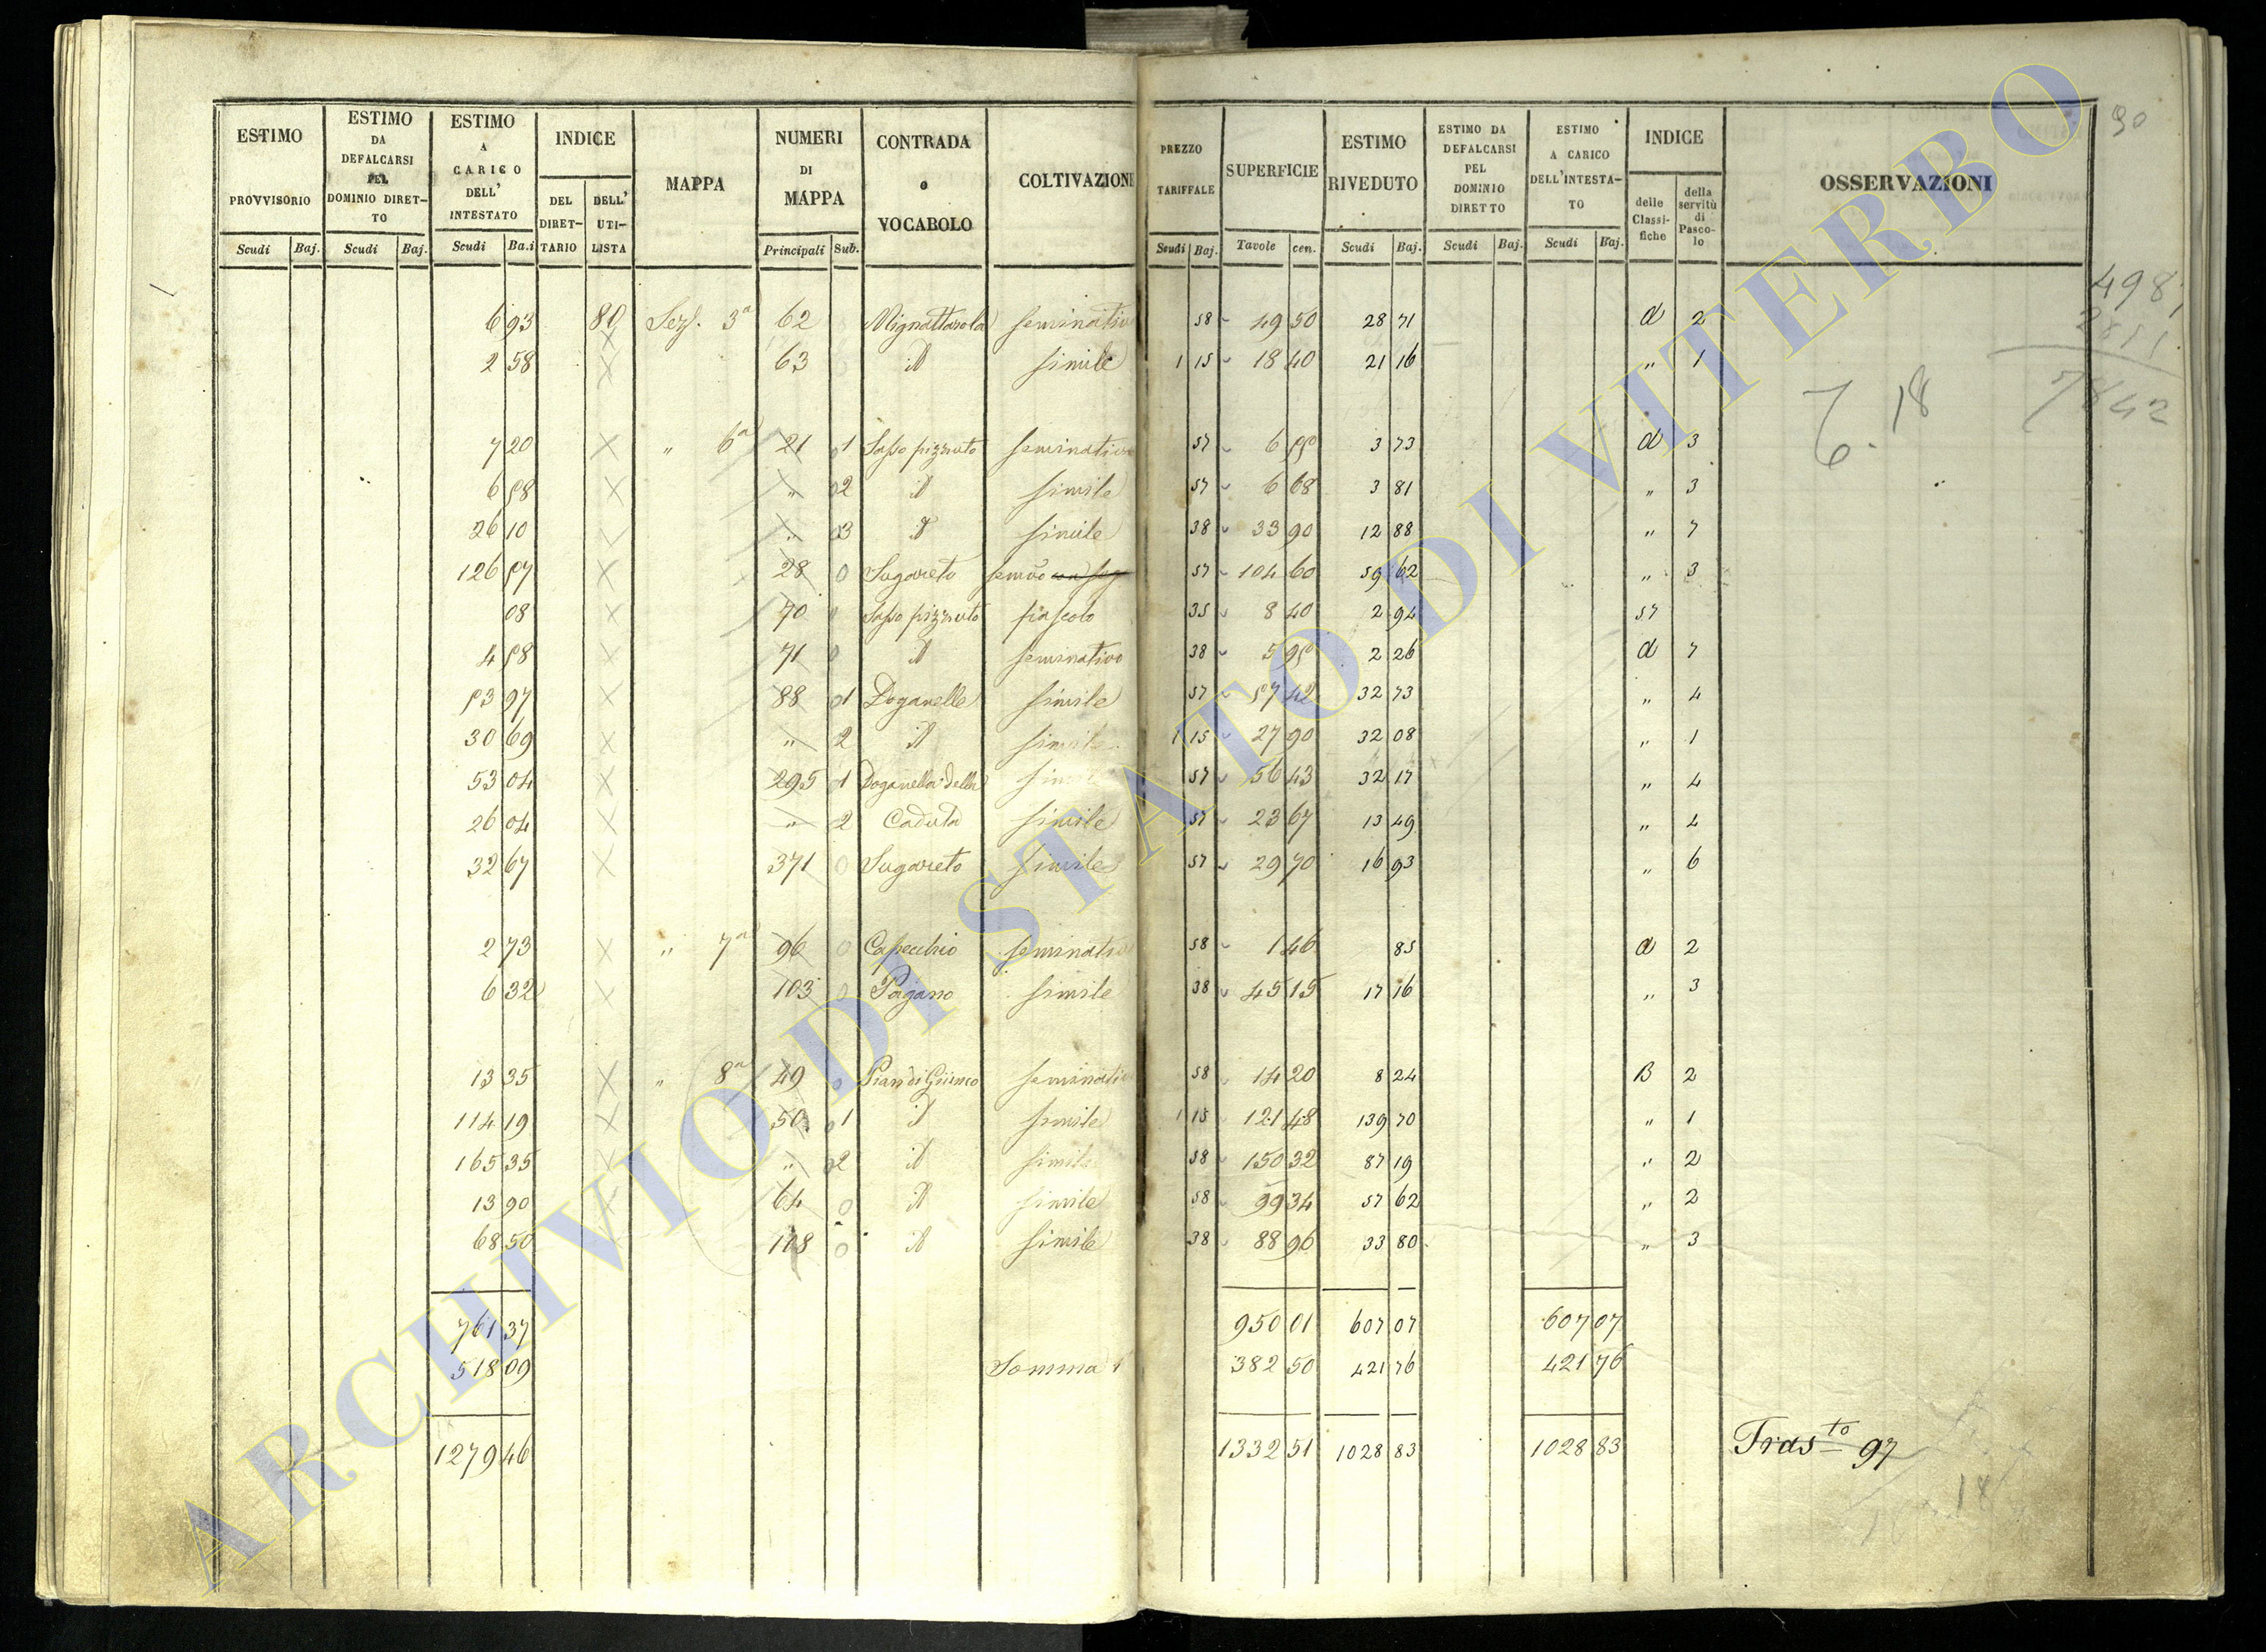 ESTIMO PROVVISORIO Scudi Baj.
ESTIMO DA DEFALCARSI PEL DOMINIO DIRETTO Scudi Baj.
ESTIMO A CARICO DELL' INTESTATO Scudi Ba.i
INDICE DEL DIRETTARIO DELL' UTILISTA
MAPPA
NUMERI DI MAPPA Principali Sub.
CONTRADA o VOCABOLO
COLTIVAZIONI
PREZZO TARIFFALE Scudi Baj.
SUPERFICIE Tavole cen.
ESTIMO RIVEDUTO Scudi Baj.
ESTIMO DA DEFALCARSI PEL DOMINIO DIRETTO Scudi Baj.
ESTIMO A CARICO DELL'INTESTATO Scudi Baj.
INDICE delle Classifiche della servitù di Pascolo
OSSERVAZIONI
90
6 93 80 Sez. 3a 62 Mignattarola seminativo 58 49 50 28 71 d 2
2 58 63 id simile 1 15 18 40 21 16 " 1
7 20 " 6a 21 1 Sasso pizzuto seminativo 57 6 55 3 73 d 3
6 58 " 2 id simile 57 6 68 3 81 " 3
26 10 " 3 id simile 38 33 90 12 88 " 7
126 57 28 0 Sugareto 57 104 60 59 62 " 3
08 70 0 Sasso pizzuto pascolo 35 8 40 2 94 57
4 58 71 0 id seminativo 38 5 95 2 26 d 7
53 97 88 1 Doganelle simile 57 57 42 32 73 " 4
30 69 " 2 id simile 1 15 27 90 32 08 " 1
53 04 295 1 Doganella della simile 57 56 43 32 17 " 4
26 04 " 2 Caduta simile 57 23 67 13 49 " 4
32 67 371 0 Sugareto simile 57 29 70 16 93 " 6
2 73 " 7a 96 0 Capecchio seminativo 58 1 46 85 d 2
6 32 103 0 Pagano simile 38 45 15 17 16 " 3
13 35 " 8a 49 0 Pian di Giunco seminativo 58 14 20 8 24 B 2
114 19 50 1 id simile 1 15 121 48 139 70 " 1
165 35 " 2 id simile 58 150 32 87 19 " 2
13 90 64 0 id simile 58 99 34 57 62 " 2
68 50 108 0 id simile 38 88 96 33 80 " 3
761 37 950 01 607 07 607 07
518 09 Somma 382 50 421 76 421 76
1279 46 1332 51 1028 83 1028 83 Tras.to 97
ARCHIVIO DI STATO DI VITERBO